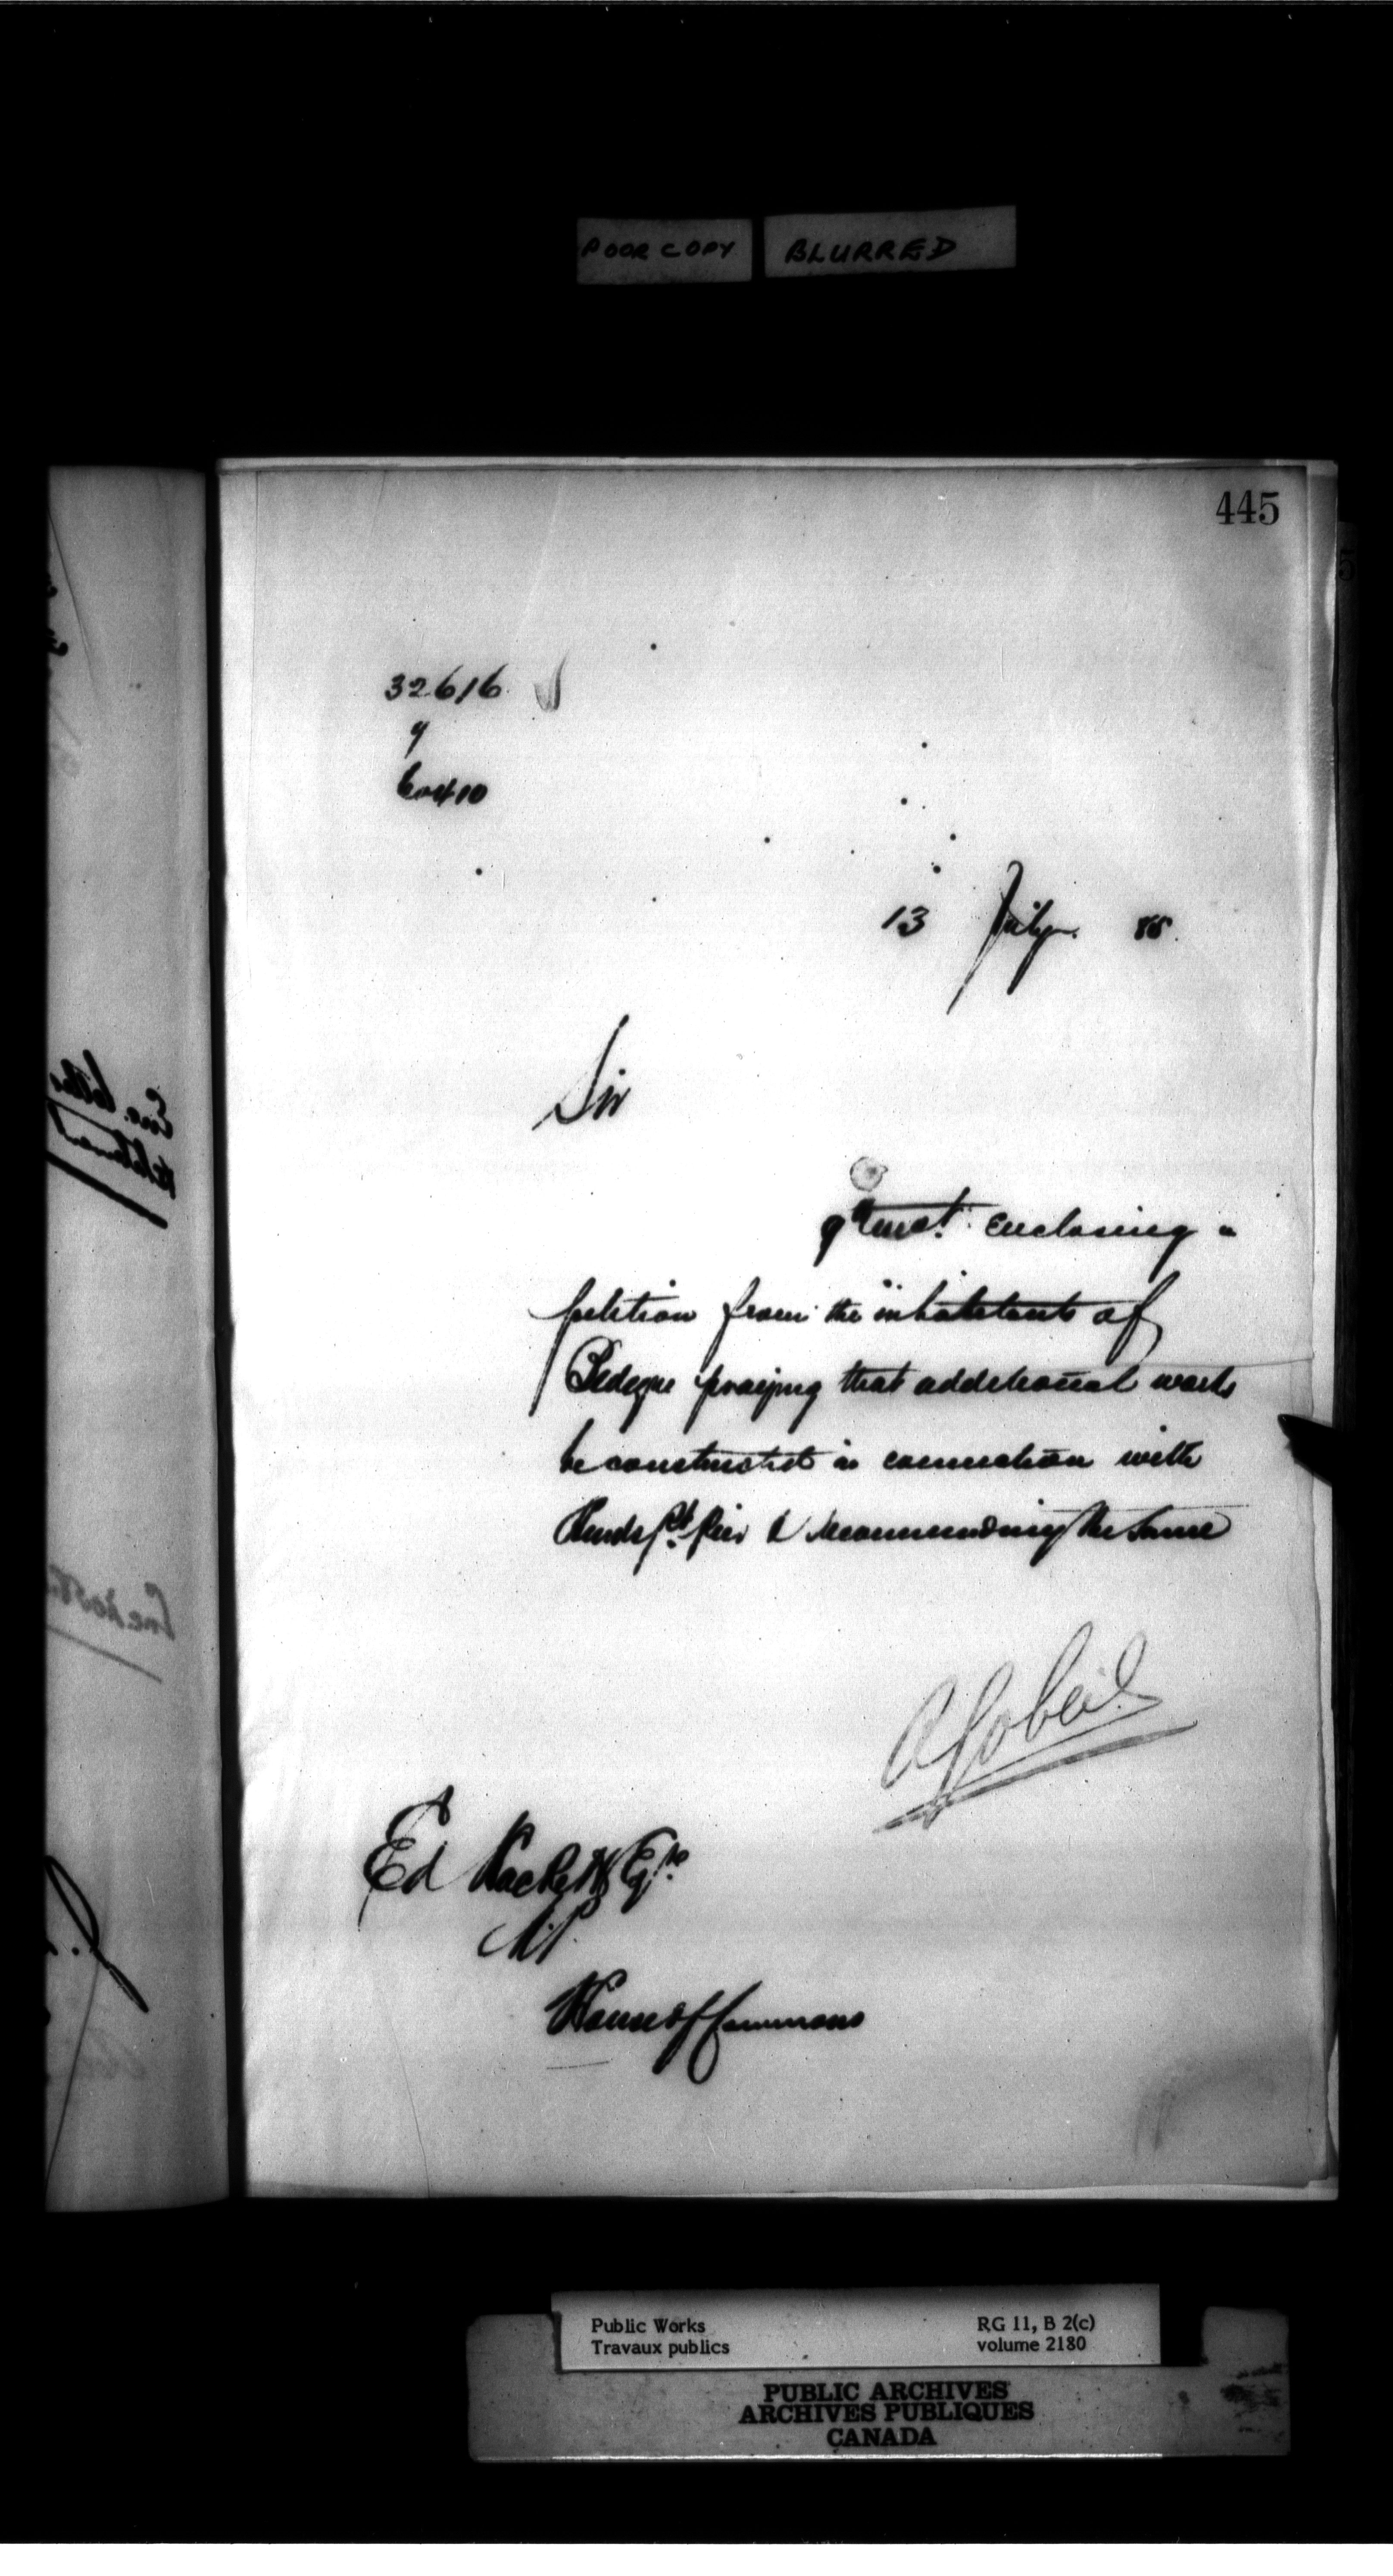 POOR COPY BLURRED
445
32616
9
60410
13 July 85.
Sir
9th inst. enclosing a
petition from the inhabitants of
Bedeque praying that additional work
be constructed in connection with
Hurds Pt. pier & recommending the same
A Gobeil
Ed Hackett Esqre
M.P.
House of Commons
Public Works RG 11, B 2(c)
Travaux publics volume 2180
PUBLIC ARCHIVES
ARCHIVES PUBLIQUES
CANADA